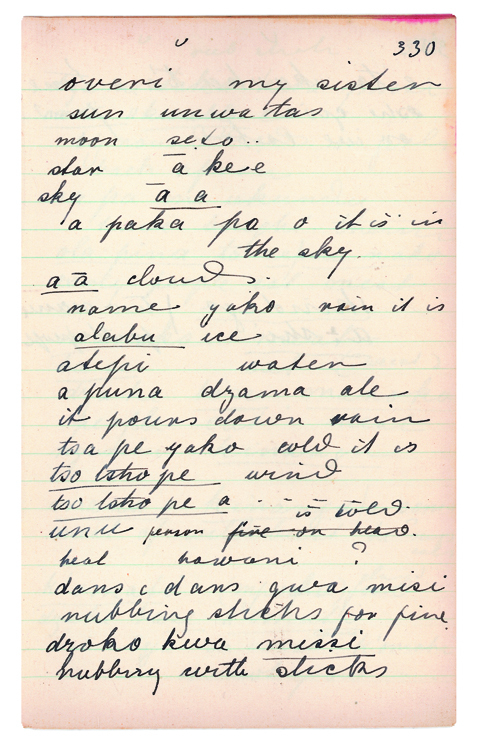 330
overi my sister
sun unwa tas
moon seto..
star ā kee
sky ā a
a paka pa o it is in
the sky.
a ā clouds.
name yako rain it is
alabu ice
atepi water
a puna dzama ale
it pours down rain
tsa pe yako cold it is
tso tsho pe wind
tso tsho pe a .. is cold.
unu person fire on head.
heat hawani ?
dans c dans gwa misi
rubbing sticks for fire
dzoko kwa missi
rubbing with sticks